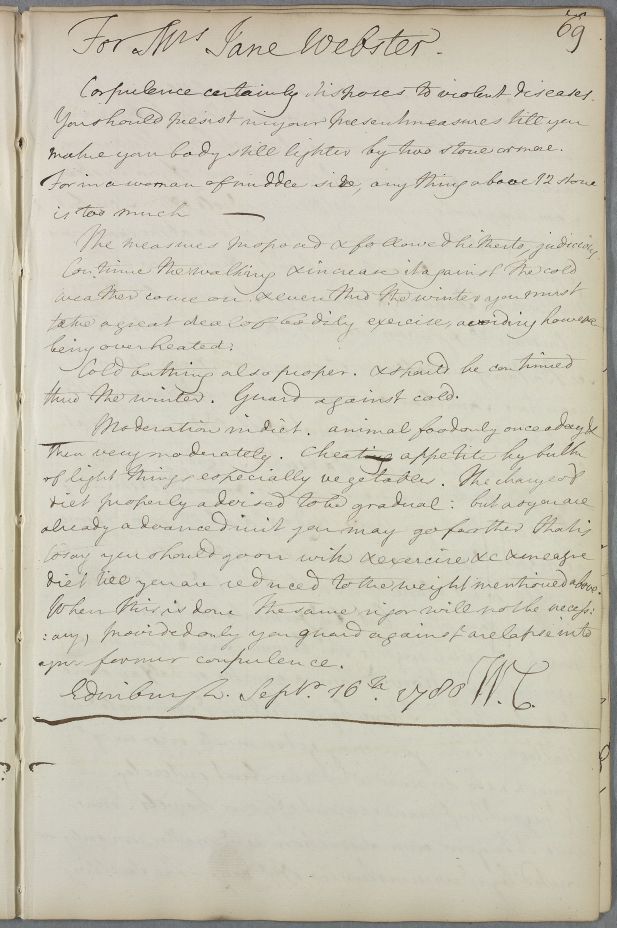 69
For Mrs Jane Webster.
Corpulence certainly disposes to violent diseases.
You should persist in your present measures till you
make your body still lighter by two stone or more.
For in a woman of middle size, any thing above 12 stone
is too much —
The measures proposed & followed hitherto, judicious,
Continue the walking & increase it against the cold
weather come on. & even thro the winter you must
take a great deal of bodily exercise, avoiding however
being overheated.
Cold bathing also proper. & should be continued
thro the winter. Guard against cold.
Moderation in diet. animal food only once a day &
then very moderately. Cheating appetite by bulk
of light things especially vegetables. The change of
diet properly advised to be gradual: but as you are
already advanced in it you may go farther that is
to say you should go on with exercise &c & meagre
diet till you are reduced to the weight mentioned above.
When this is done the same rigor will not be necess:
:ary, provided only you guard against a relapse into
your former corpulence.
Edinburgh. Septr. 16th 1780 W.C.